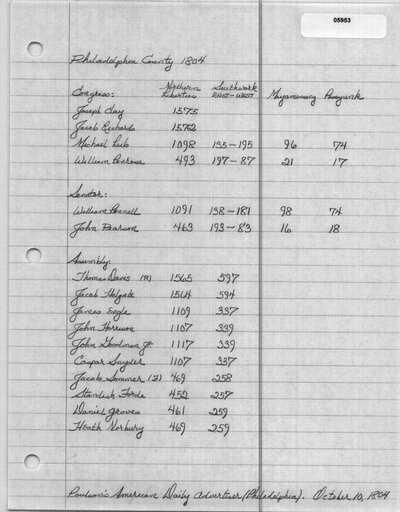 05953
Philadelphia County 1804
Northern Southwark
Congress: Liberties East-West Moyamensing Passyunk
Joseph Clay 1575
Jacob Richards 1572
Michael Leib 1098 135-195 96 74
William Penrose 493 197-87 21 17
Senator:
William Pennell 1091 138-181 98 74
John Pearson 463 193-83 16 18
Assembly:
Thomas Davis (R) 1565 597
Jacob Holgate 1564 594
James Engle 1109 337
John Harrison 1107 339
John Goodman Jr. 1117 339
Caspar Snyder 1107 337
Jacob Sommer (F) 469 258
Standish Forde 452 257
Daniel Groves 461 259
Heath Norbury 469 259
Poulson's American Daily Advertiser (Philadelphia). October 10, 1804